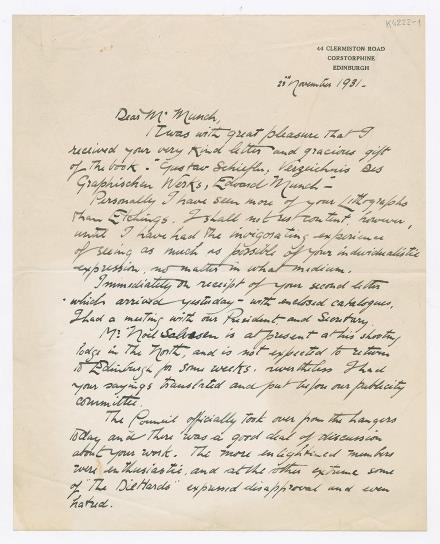 K4222-1
44 CLERMISTON ROAD
CORSTORPHINE
EDINBURGH
November 1931.-
Dear Mr Munch,
It was with great pleasure that I
received your very kind letter and gracious gift
of the book. "Gustav Schiefler, Verzeichnis Des
Graphischen Werks, Edvard Munch -
Personally I have seen more of your Lithographs
than Etchings. I shall not rest content, however,
until I have had the invigorating experience
of seeing as much as possible of your individualistic
expression, no matter in what medium.
Immediately on receipt of your second letter
- which arrived yesterday - with enclosed catalogues,
I had a meeting with our President, and Secretary.
Mr Noel is at present at his shooting
lodge in the North, and is not expected to return
to Edinburgh for some weeks. nevertheless I had
your sayings translated and put before our publicity
committee.
The Council officially took over from the hangers
today and there was a good deal of discussion
about your work. The more enlightened members
were enthusiastic, and at the other extreme some
of "The DieHards" expressed disapproval and even
hatred.